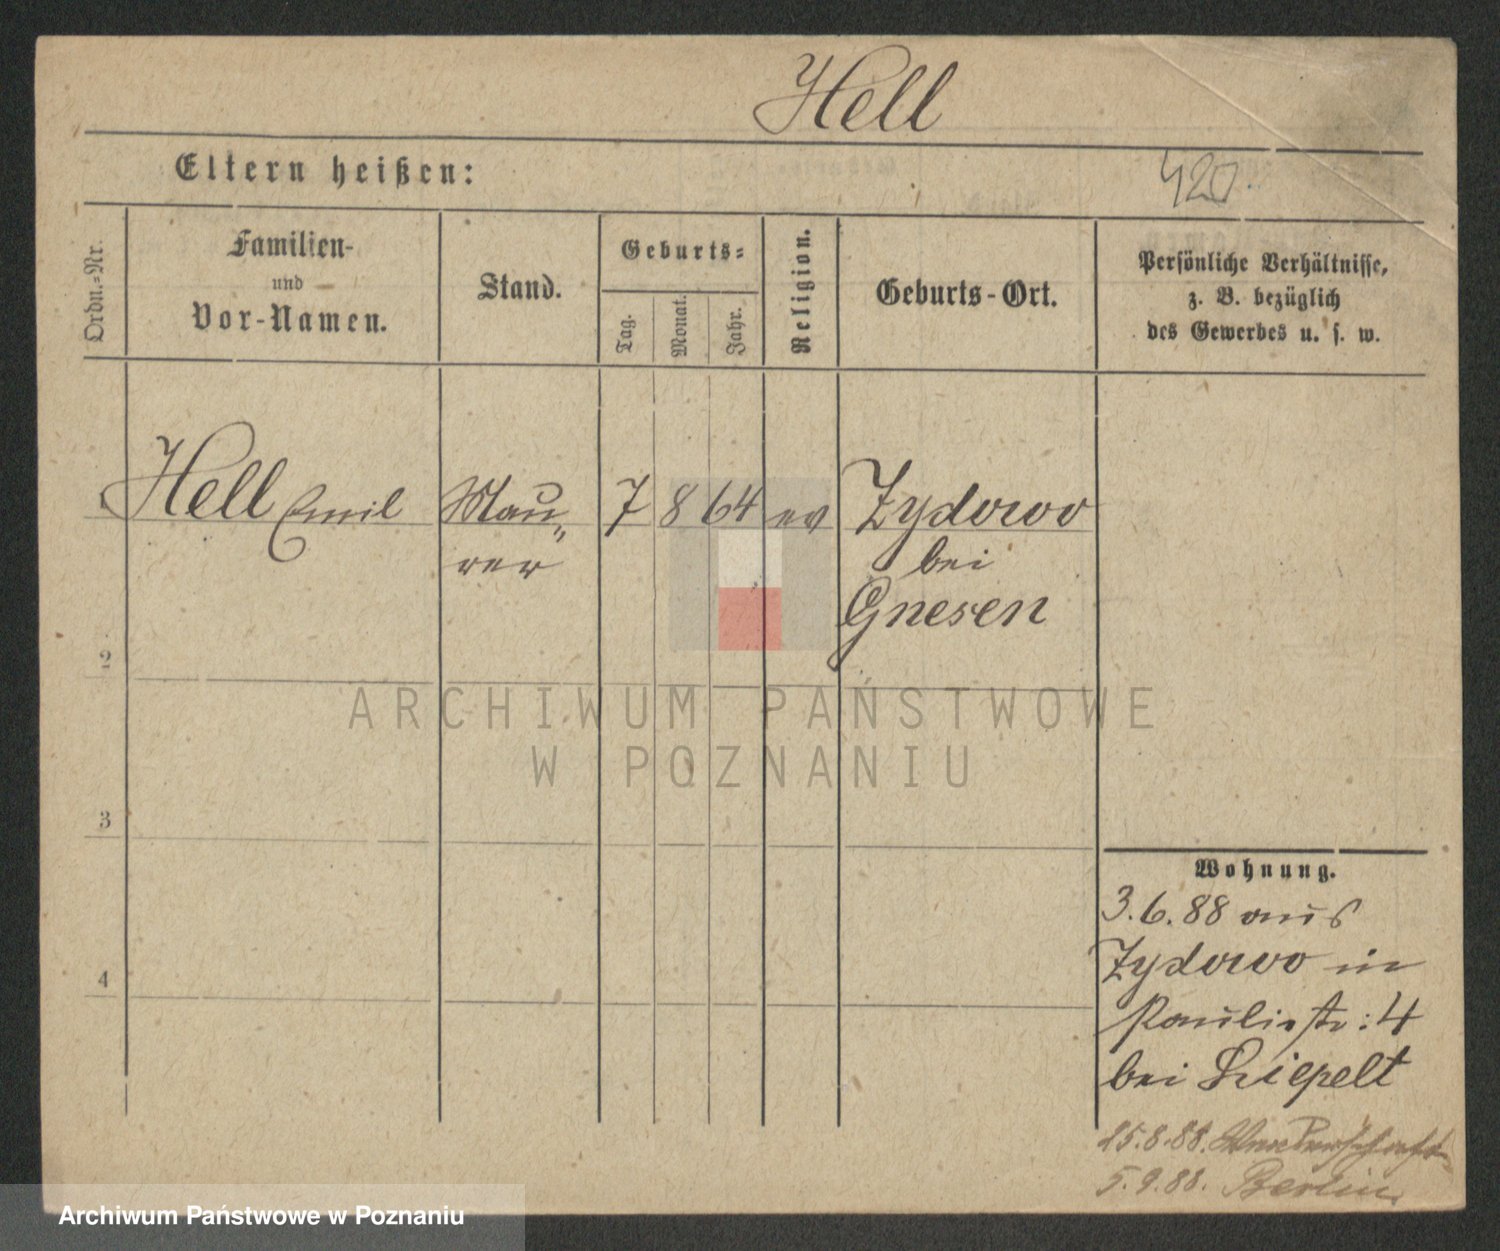 Hell
Eltern heißen:
420.
Ordn.-Nr.
Familien-
und
Vor-Namen.
Stand.
Geburts-
Tag.
Monat.
Jahr.
Religion.
Geburts-Ort.
Persönliche Verhältnisse,
z. B. bezüglich
des Gewerbes u. s. w.
1 Hell Emil Mau- 7 8 64 ev Zydowo
rer bei
Gnesen
2
ARCHIWUM PAŃSTWOWE
W POZNANIU
3
Wohnung.
3.6.88 aus
Zydowo in
Paulistr: 4
bei Liepelt
4
25.8.88. Wanderschaft
5.9.88. Berlin.
Archiwum Państwowe w Poznaniu